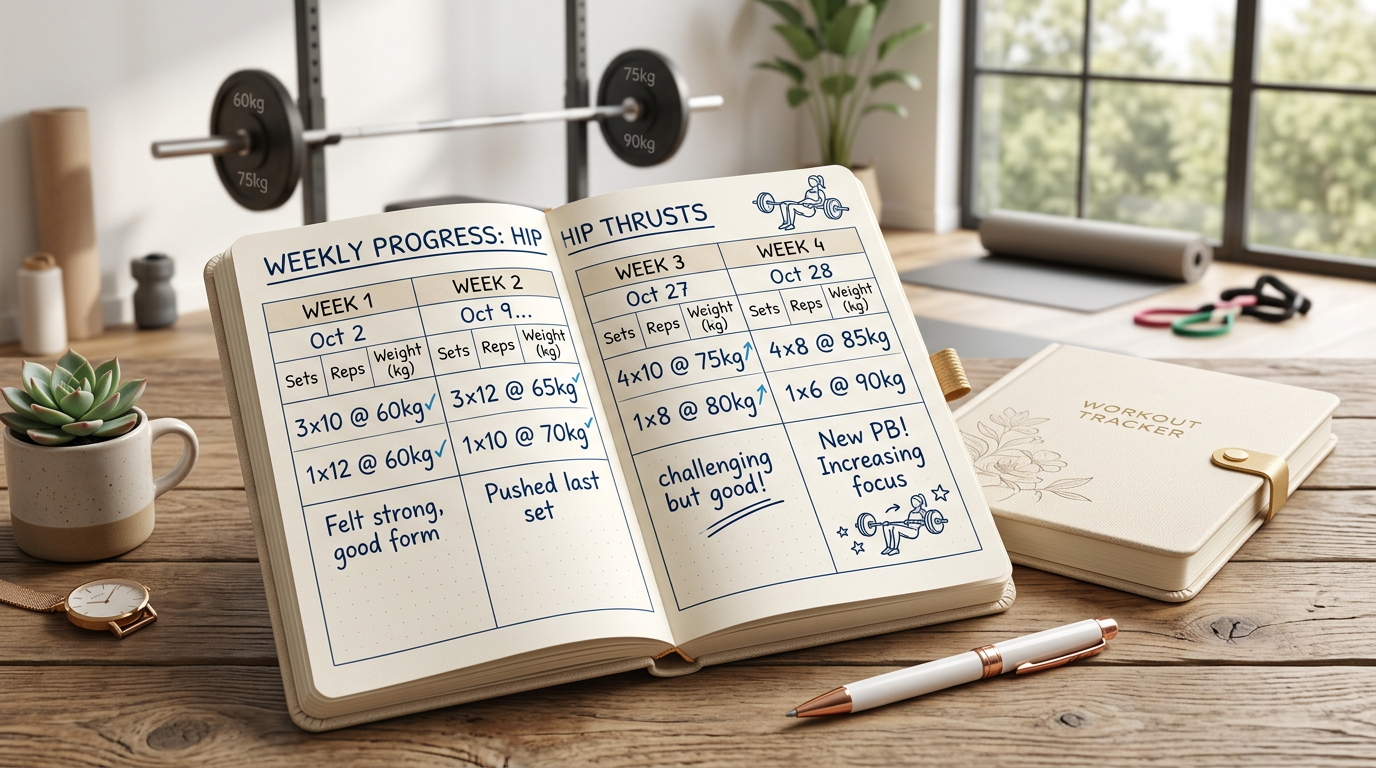 60kg
75kg
75kg
90kg
WEEKLY PROGRESS: HIP HIP THRUSTS
WEEK 1
Oct 2
Sets Reps Weight (kg)
3x10 @ 60kg✓
1x12 @ 60kg✓
Felt strong,
good form
WEEK 2
Oct 9...
Sets Reps Weight (kg)
3x12 @ 65kg✓
1x10 @ 70kg✓
Pushed last
set
WEEK 3
Oct 27
Sets Reps Weight (kg)
4x10 @ 75kg↑
1x8 @ 80kg↑
challenging
but good!
WEEK 4
Oct 28
Sets Reps Weight (kg)
4x8 @ 85kg
1x6 @ 90kg
New PB!
Increasing
focus
WORKOUT
TRACKER